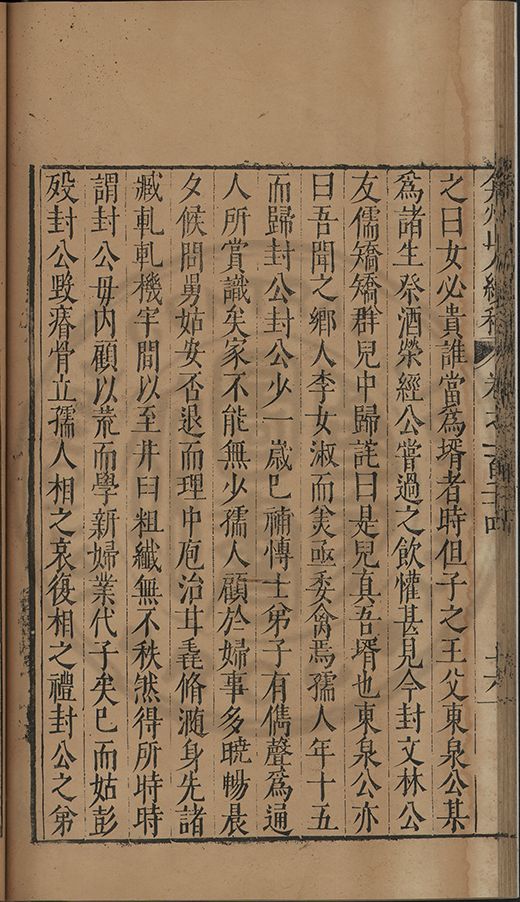 之曰女必貴誰當爲壻者時但子之王父東泉公某
爲諸生祭酒榮經公嘗過之飲懽甚見今封文林公
友儒矯矯群兒中歸詫曰是兒真吾壻也東泉公亦
曰吾聞之鄉人李女淑而美亟委禽焉孺人年十五
而歸封公封公少一歲已補博士弟子有儁聲爲通
人所賞識矣家不能無少孺人顧於婦事多曉暢晨
夕候問舅姑安否退而理中庖治甘毳脩瀡身先諸
臧軋軋機宇間以至井臼粗纖無不秩然得所時時
謂封公毋內顧以荒而學新婦業代子矣已而姑彭
歿封公毀瘠骨立孺人相之哀復相之禮封公之弟
弇州山人續稿 卷之一百二十四 十六